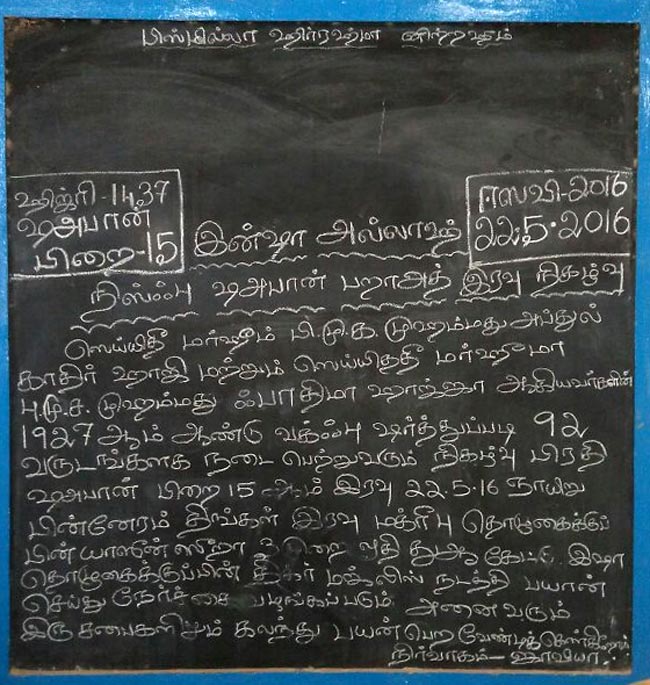 பிஸ்மில்லா ஹிர்ரஹ்மா னிர்ரஹீம்
ஹிஜ்ரி-1437
ஷஅபான்
பிறை-15
ஈஸவி-2016
22.5.2016
இன்ஷா அல்லாஹ்
நிஸ்ஃபு ஷஅபான் பறாஅத் இரவு நிகழ்வு
ஸெய்யிதீ மர்ஹூம் பி.மு.க. முஹம்மது அப்துல்
காதிர் ஹாஜி மற்றும் ஸெய்யிதத்தீ மர்ஹூமா
மு.ச. முஹம்மது ஃபாதிமா ஆகியவர்களின்
1927 ஆம் ஆண்டு வக்ஃபு ஷர்த்துப்படி 92
வருடங்களாக நடை பெற்றுவரும் நிகழ்வு பிரதி
ஷஅபான் பிறை 15 ஆம் இரவு 22.5.16 ஞாயிறு
பின்னேரம் திங்கள் இரவு மக்ரீபு தொழுகைக்குப்
பின் யாஸீன் ஸூரா 3 முறை ஓதி துஆ கேட்டு இஷா
தொழுகைக்குப்பின் திக்ர் மஜ்லிஸ் நடத்தி பயான்
செய்து நேர்ச்சை வழங்கப்படும். அனைவரும்
இரு சபைகளிலும் கலந்து பயன் பெற வேண்டிக் கேண்கிறோம்
நிர்வாகம்-